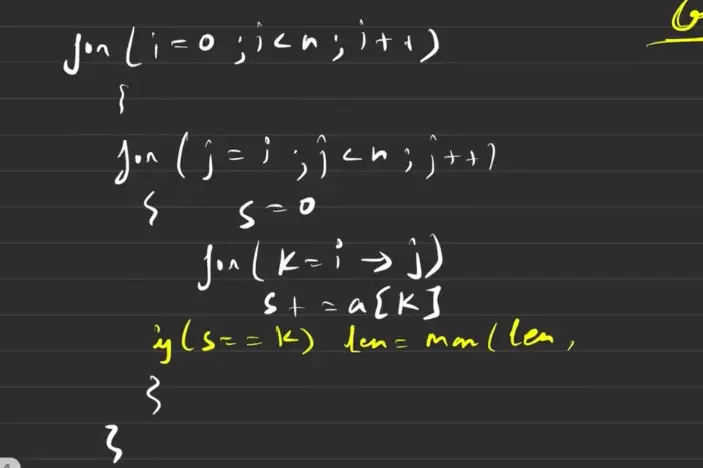 for(i=0;i<n;i++)
{
for(j=i;j<n;j++)
{ s=0
for(k=i→j)
s+=a[k]
if(s==k) len=max(len,
}
}